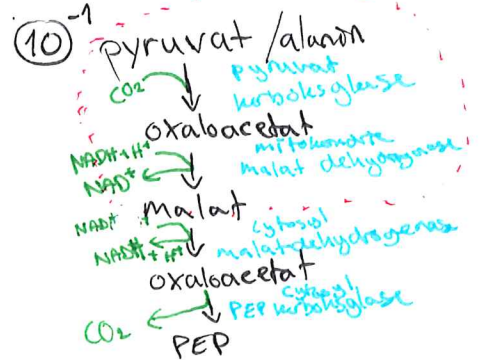 10 -1
pyruvat / alanin
CO2
pyruvat
karboksylase
oxaloacetat
NADH + H+
NAD+
mitokondrie
malat dehydrogenase
malat
NAD+
NADH + H+
cytosyl
malatdehydrogenase
oxaloacetat
CO2
cytosyl
PEP karboksylase
PEP